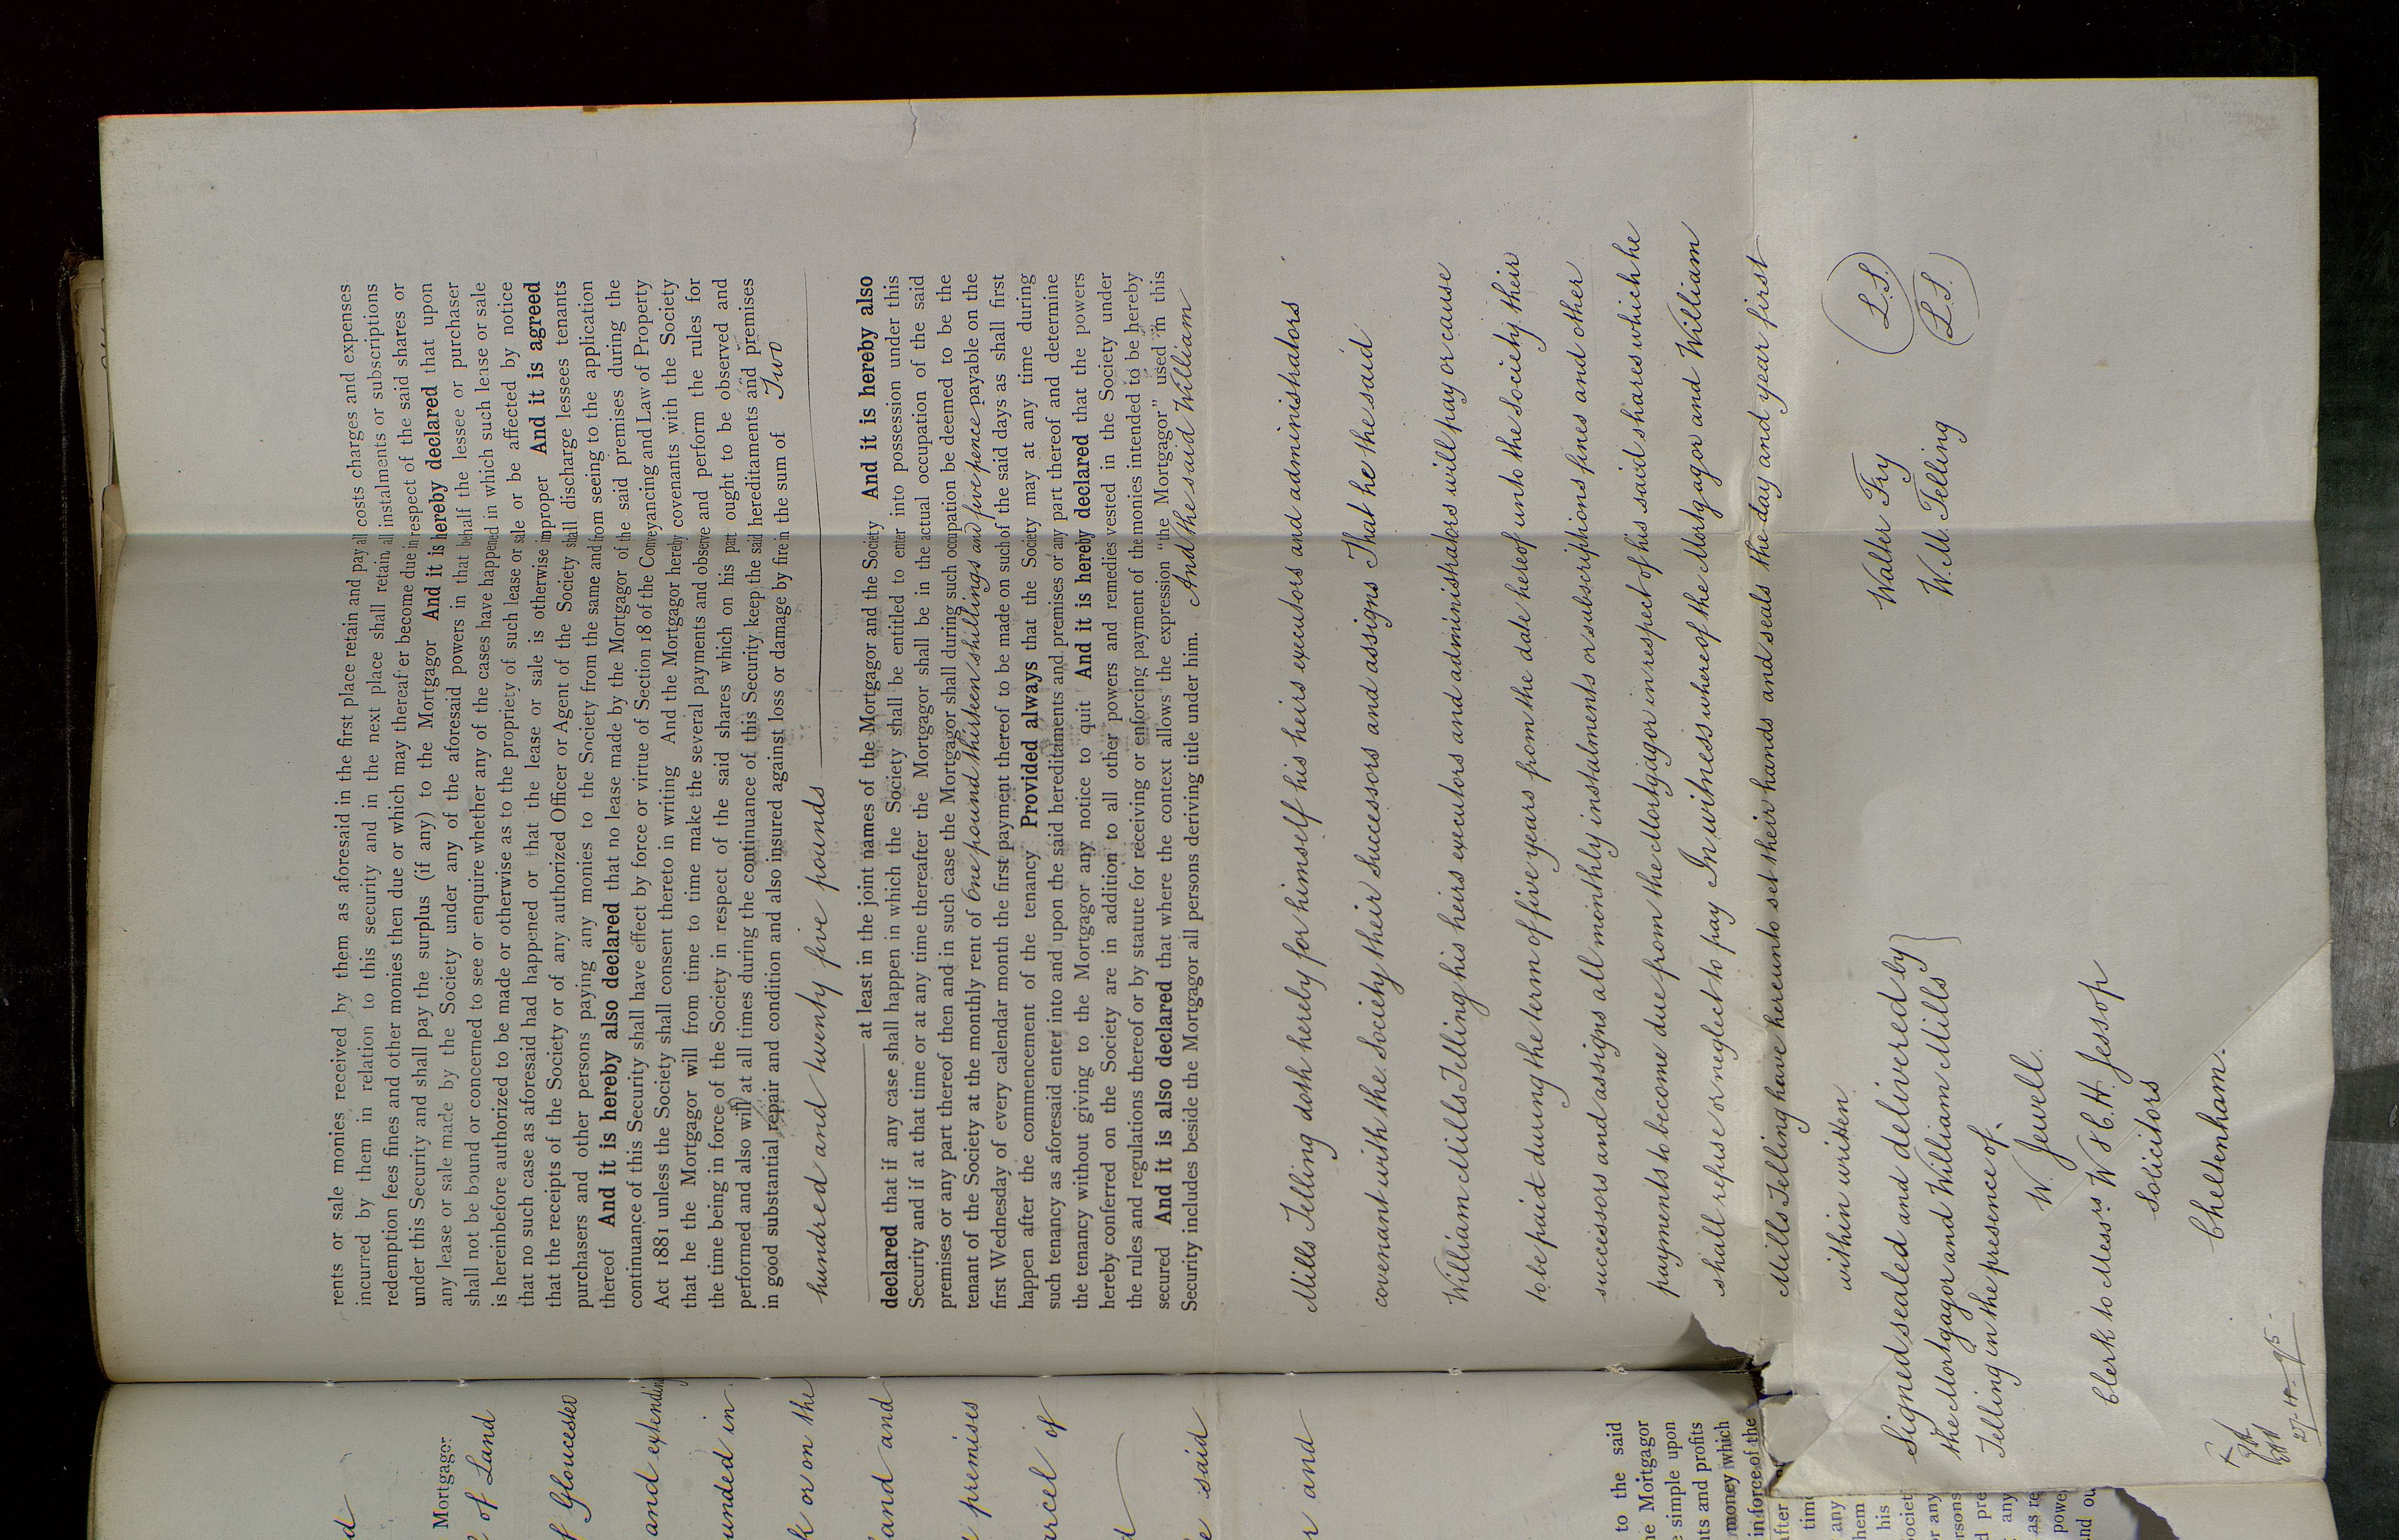 rents or sale monies received by them as aforesaid in the first place retain and pay all costs charges and expenses
incurred by them in relation to this security and in the next place shall retain all instalments or subscriptions
redemption fees fines and other monies then due or which may thereafter become due in respect of the said shares or
under this Security and shall pay the surplus (if any) to the Mortgagor And it is hereby declared that upon
any lease or sale made by the Society under any of the aforesaid powers in that behalf the lessee or purchaser
shall not be bound or concerned to see or enquire whether any of the cases have happened in which such lease or sale
is hereinbefore authorized to be made or otherwise as to the propriety of such lease or sale or be affected by notice
that no such case as aforesaid had happened or that the lease or sale is otherwise improper And it is agreed
that the receipts of the Society or of any authorized Officer or Agent of the Society shall discharge lessees tenants
purchasers and other persons paying any monies to the Society from the same and from seeing to the application
thereof And it is hereby also declared that no lease made by the Mortgagor of the said premises during the
continuance of this Security shall have effect by force or virtue of Section 18 of the Conveyancing and Law of Property
Act 1881 unless the Society shall consent thereto in writing And the Mortgagor hereby covenants with the Society
that he the Mortgagor will from time to time make the several payments and observe and perform the rules for
the time being in force of the Society in respect of the said shares which on his part ought to be observed and
performed and also will at all times during the continuance of this Security keep the said hereditaments and premises
in good substantial repair and condition and also insured against loss or damage by fire in the sum of Two
hundred and twenty five pounds
at least in the joint names of the Mortgagor and the Society And it is hereby also
declared that if any case shall happen in which the Society shall be entitled to enter into possession under this
Security and if at that time or at any time thereafter the Mortgagor shall be in the actual occupation of the said
premises or any part thereof then and in such case the Mortgagor shall during such occupation be deemed to be the
tenant of the Society at the monthly rent of One pound thirteen shillings and five pence payable on the
first Wednesday of every calendar month the first payment thereof to be made on such of the said days as shall first
happen after the commencement of the tenancy Provided always that the Society may at any time during
such tenancy as aforesaid enter into and upon the said hereditaments and premises or any part thereof and determine
the tenancy without giving to the Mortgagor any notice to quit And it is hereby declared that the powers
hereby conferred on the Society are in addition to all other powers and remedies vested in the Society under
the rules and regulations thereof or by statute for receiving or enforcing payment of the monies intended to be hereby
secured And it is also declared that where the context allows the expression "the Mortgagor" used in this
Security includes beside the Mortgagor all persons deriving title under him. And the said William
Mills Telling doth hereby for himself his heirs executors and administrators
covenant with the Society their successors and assigns That he the said
William Mills Telling his heirs executors and administrators will pay or cause
to be paid during the term of five years from the date hereof unto the Society their
successors and assigns all monthly instalments or subscriptions fines and other
payments to become due from the Mortgagor in respect of his said shares which he
shall refuse or neglect to pay In witness whereof the Mortgagor and William
Mills Telling have hereunto set their hands and seals the day and year first
within written
Signed sealed and delivered by
the Mortgagor and William Mills
Telling in the presence of
Walter Fry L.S.
W. M. Telling L.S.
W. Jewell.
Clerk to Messrs W H. Jessop
Solicitors
Cheltenham.
Mortgagor
of Land
Gloucester
and extending
unded in
or on the
and and
premises
rcel of
said
and
to the said
Mortgagor
simple upon
and profits
money which
in force of the